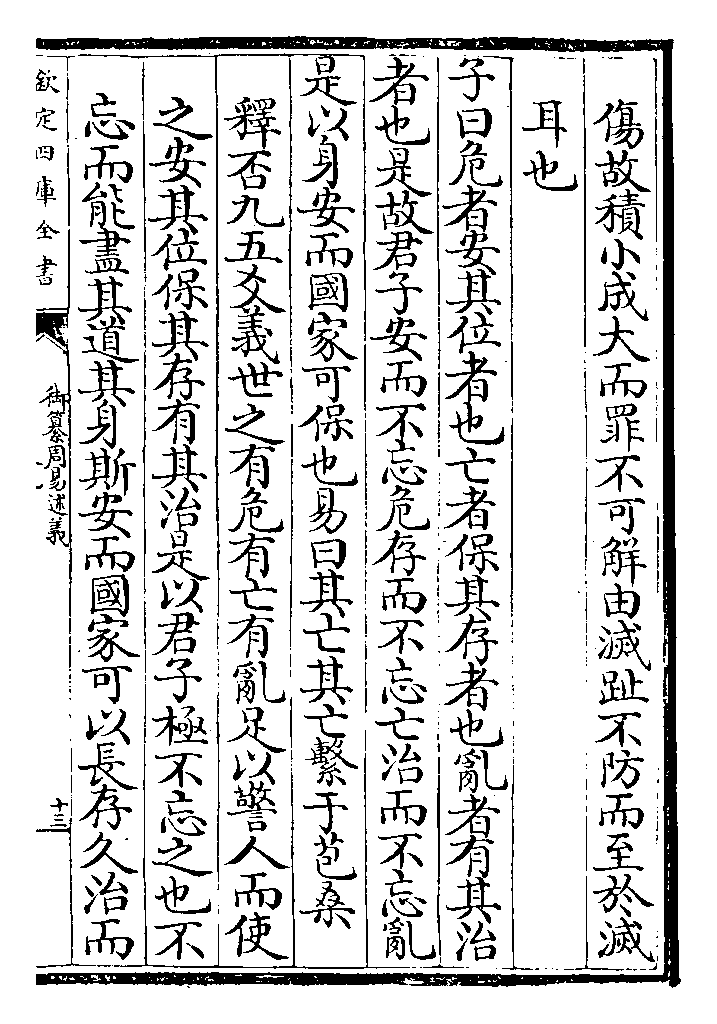 傷故積小成大而罪不可解由滅趾不防而至於滅
耳也
子曰危者安其位者也亡者保其存者也亂者有其治
者也是故君子安而不忘危存而不忘亡治而不忘亂
是以身安而國家可保也易曰其亡其亡繫于苞桑
釋否九五爻義世之有危有亡有亂足以警人而使
之安其位保其存有其治是以君子極不忘之也不
忘而能盡其道其身斯安而國家可以長存久治而
欽定四庫全書
御纂周易述義
十三